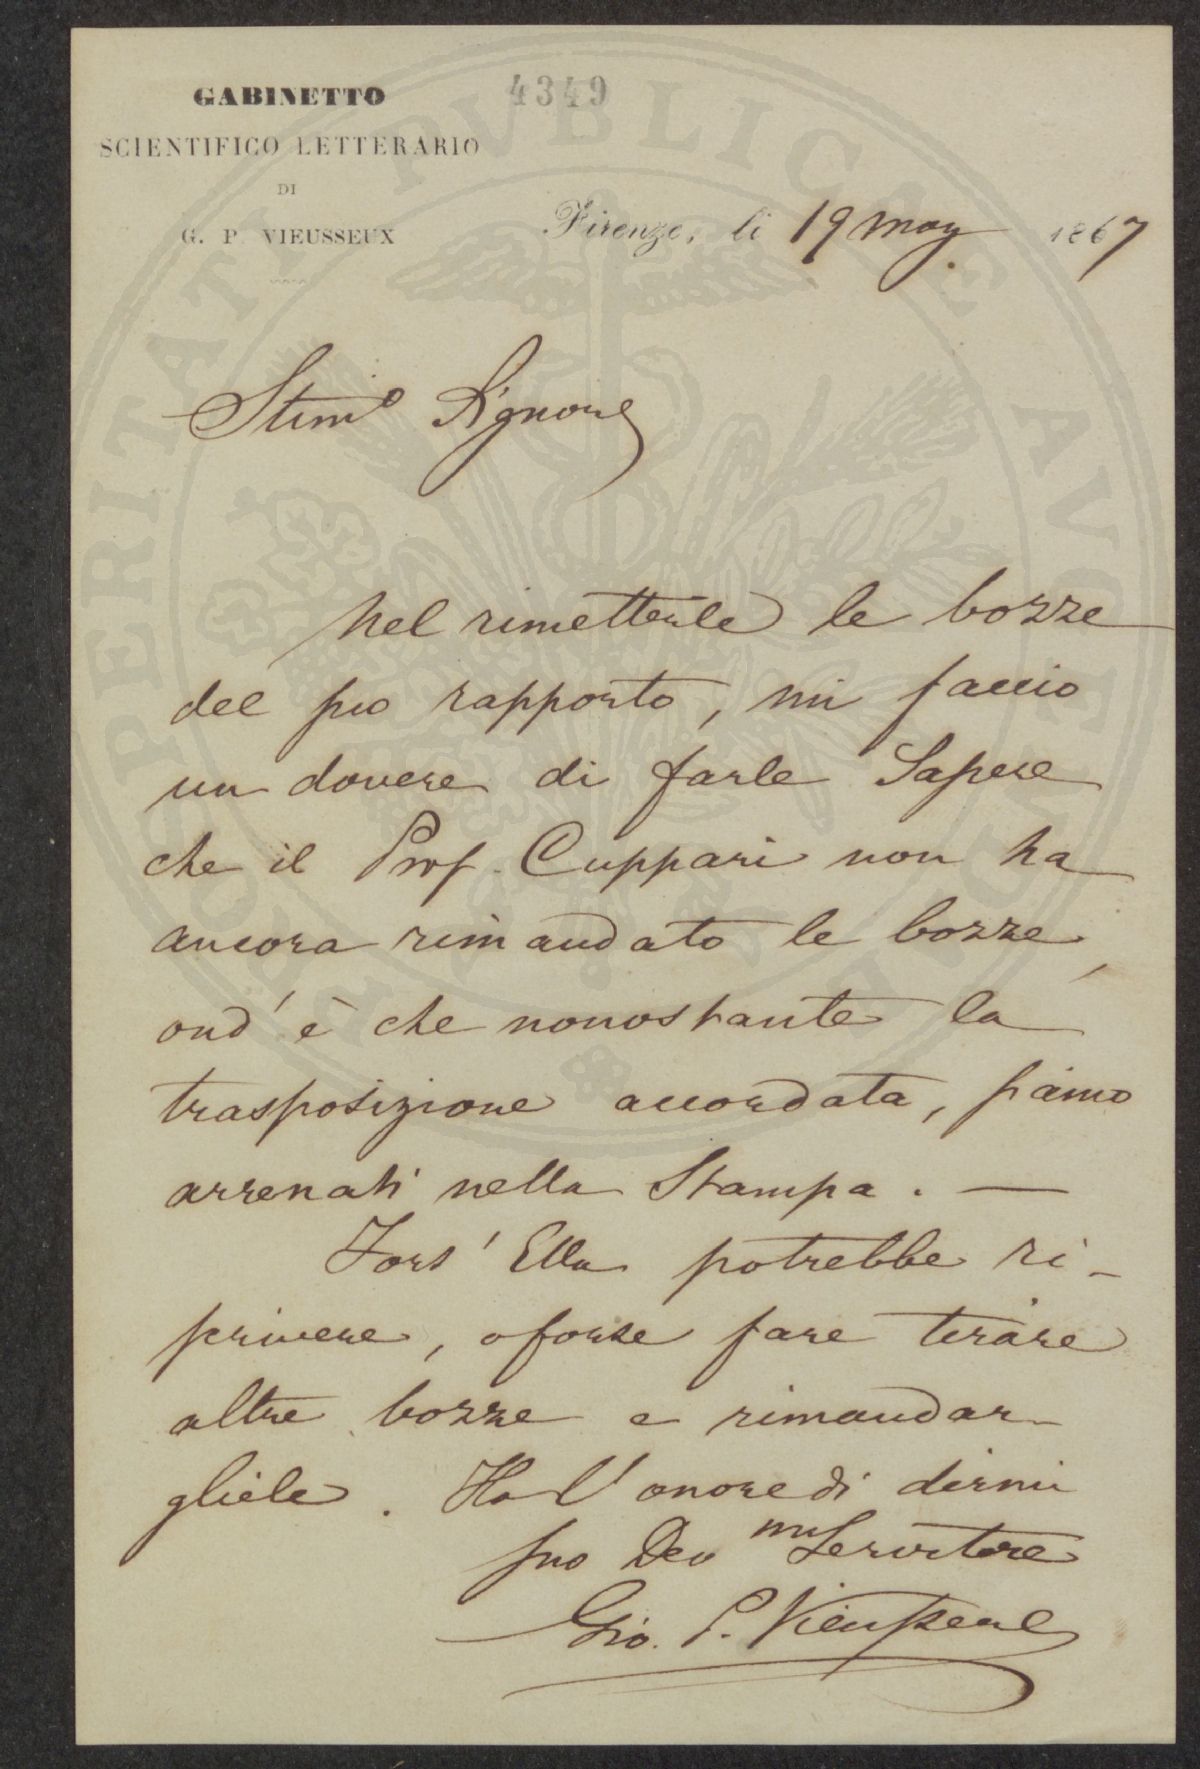 GABINETTO
SCIENTIFICO LETTERARIO
DI
G. P. VIEUSSEUX
4349
Firenze, li 19 mag. 1867
Stimo Signore
Nel rimetterle le bozze
del suo rapporto, mi faccio
un dovere di farle Sapere
che il Prof. Cuppari non ha
ancora rimandato le bozze,
ond'è che nonostante la
trasposizione accordata, siamo
arrenati nella Stampa. —
Fors' Ella potrebbe ri-
scrivere, o forse fare tirare
altre bozze e rimandar-
gliele. Ho l'onore di dirmi
suo Devmo Servitore
Gio. P. Vieusseux
PROSPERITATI PVBLICAE AVGENDAE